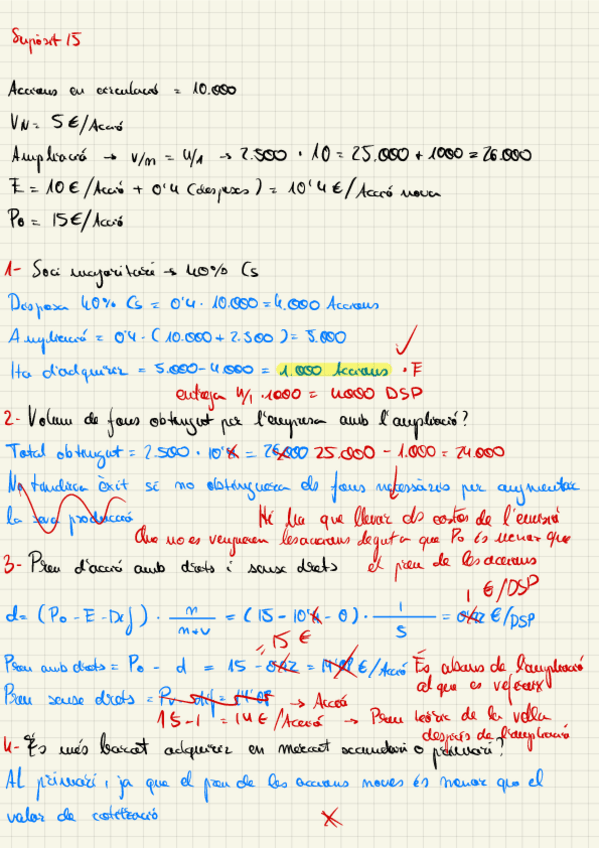 Supòsit 15
Accions en circulació = 10.000
VN = 5€/Acció
Ampliació → v/n = 4/1 → 2.500 · 10 = 25.000 + 1000 = 26.000
E = 10€/Acció + 0'4 (despeses) = 10'4€/Acció nova
Po = 15€/Acció
1- Soci majoritari → 40% Cs
Disposa 40% Cs = 0'4 · 10.000 = 4.000 Accions
Ampliació = 0'4 · (10.000 + 2.500) = 5.000
Ha d'adquirir = 5.000 - 4.000 = 1.000 Accions · E
entregar 4/1 · 1000 = 4000 DSP
2- Volum de fons obtingut per l'empresa amb l'ampliació?
Total obtingut = 2.500 · 10'4 = 26.000 25.000 - 1.000 = 24.000
No tindria èxit si no obtinguera els fons necessàris per augmentar
la seva producció
Hi ha que llevar els costos de l'emisió
Que no es vengueren les accions degut a que Po és menor que
el preu de les accions
3- Preu d'acció amb drets i sense drets
1 €/DSP
d = (Po - E - Dif) · n/n+v = (15 - 10'4 - 0) · 1/5 = 0'92 €/DSP
= 15 €
Preu amb drets = Po - d = 15 - 0'92 = 14'08 €/Acció És abans de l'ampliació
al que es refereix
Preu sense drets = Po - dif = 14'08 → Acció
15 - 1 = 14€/Acció → Preu teòric de la vella
després de l'ampliació
4- És més barat adquirir en mercat secundari o primari?
Al primari, ja que el preu de les accions noves és menor que el
valor de cotització